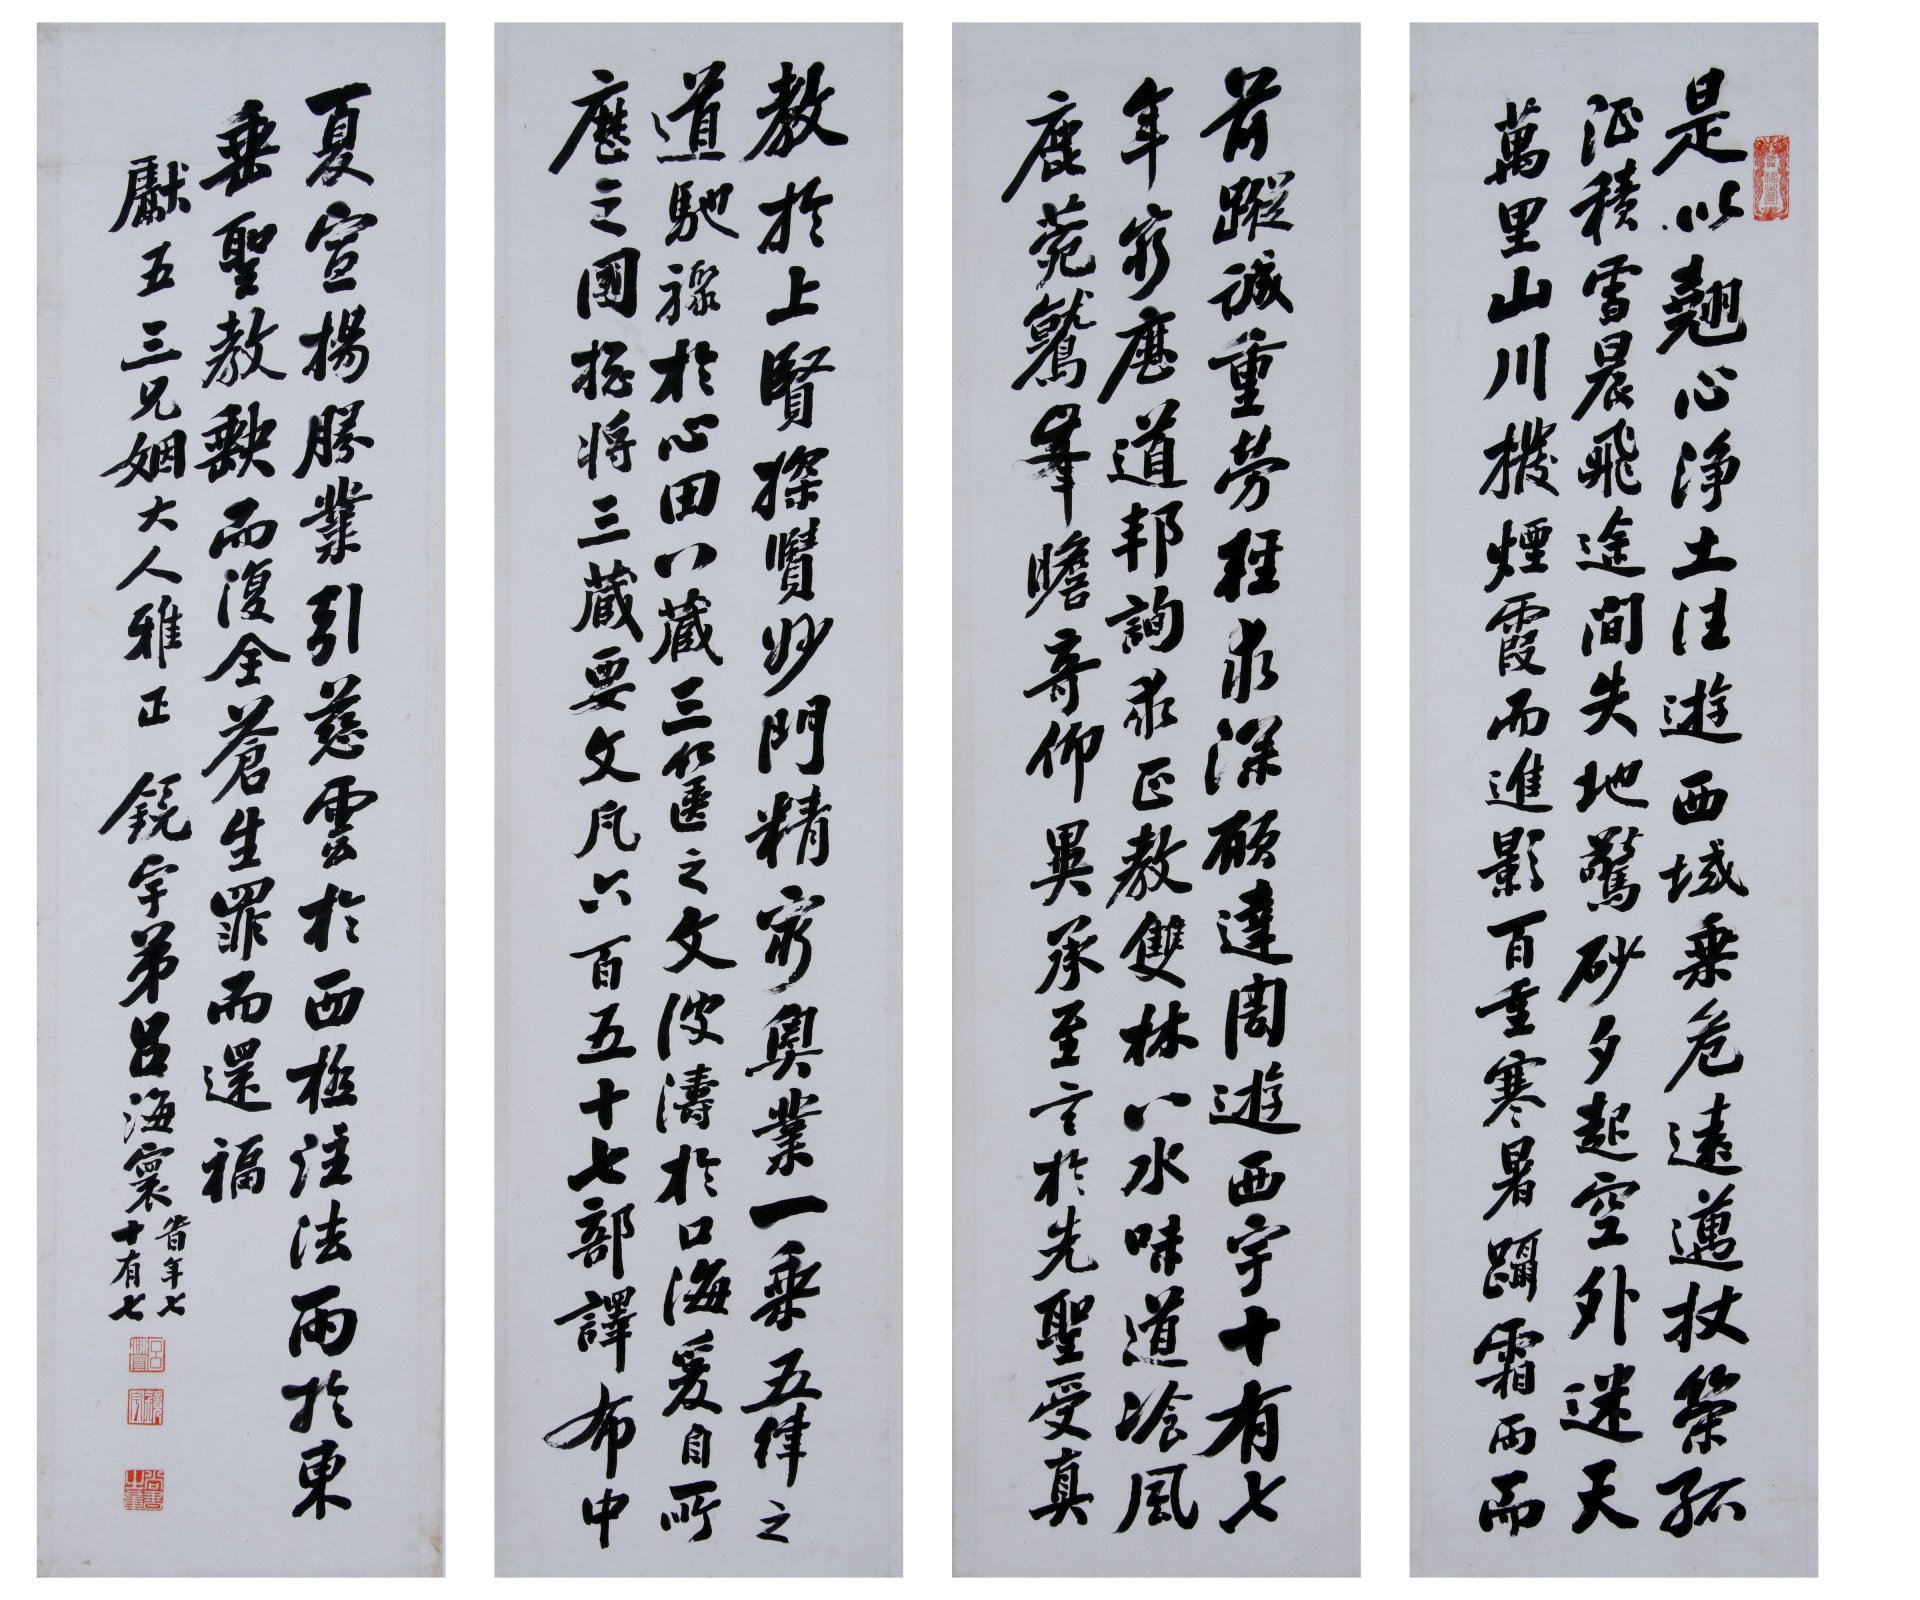 是以翹心淨土法遊西域乗危遠邁杖策孤
征積雪晨飛途閒失地驚砂夕起空外迷天
萬里山川撥煙霞而進影百重寒暑躡霜雨而
前蹤誠重勞輕求深願達周遊西宇十有七
年窮歷道邦詢求正教雙林八水味道飡風
鹿菀鷲峯瞻奇仰異承至言於先聖受真
教於上賢探賾妙門精窮奧業一乘五律之
道馳驟於心田八藏三篋之文波濤於口海爰自所
歷之國揔將三藏要文凡六百五十七部譯布中
夏宣揚勝業引慈雲於西極注法雨於東
垂聖教缺而復全蒼生罪而還福
獻五三兄姻大人雅正 鏡宇弟呂海寰
時年七
十有七